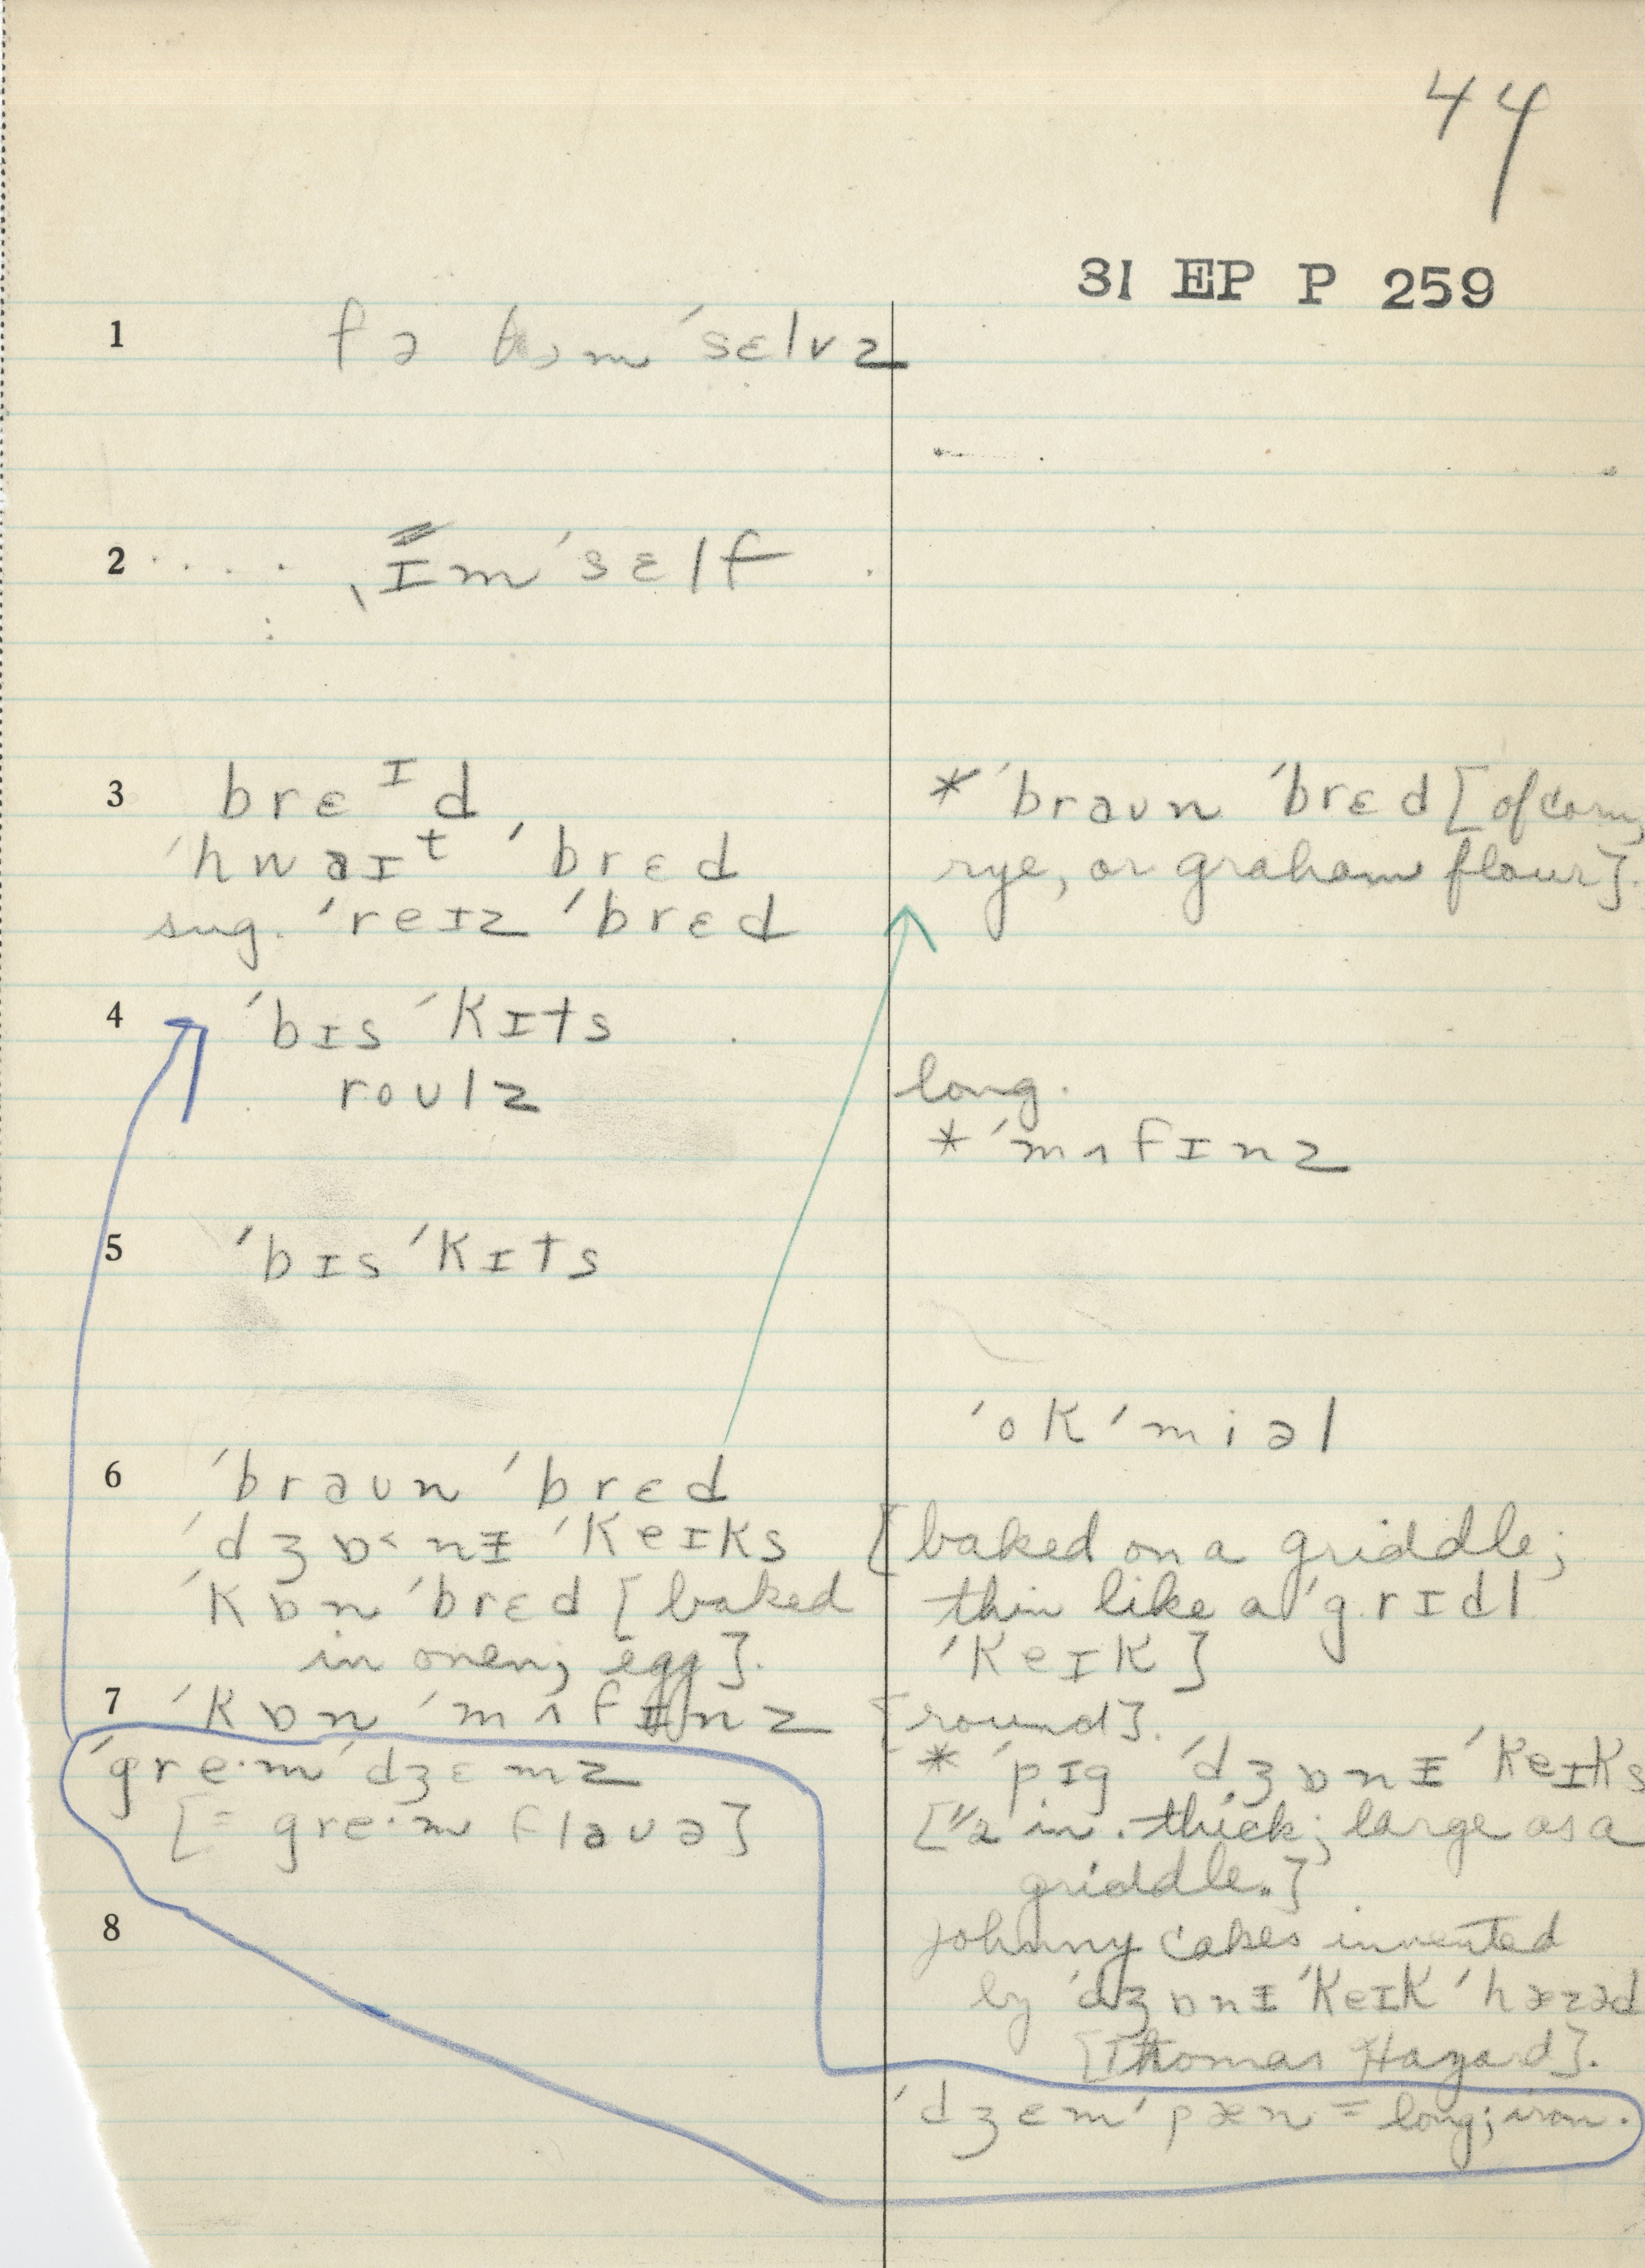 44
31 EP P 259
1 fə ðəmˈsɛlvz
2 ˌɪmˈsɛlf
3 brɛᴵd
ˈhwaɪᵗ ˈbrɛd
sug. ˈreɪz ˈbrɛd
* ˈbraʊn ˈbrɛd [of corn,
rye, or graham flour].
4 ˈbɪsˈkɪts
roʊlz
long.
* ˈmʌfɪnz
5 ˈbɪsˈkɪts
ˈokˈmiəl
6 ˈbraʊn ˈbrɛd
ˈdʒɒ˂nɪ ˈkeɪks
[baked on a griddle;
thin like a ˈgrɪdl
ˈkeɪk]
ˈkɒn ˈbrɛd [baked
in oven; egg].
7 ˈkɒn ˈmʌfɪnz
[round].
ˈgre·mˈdʒɛmz
[= gre·m flaʊə]
* ˈpɪg ˈdʒɒnɪ ˈkeɪks
[1/2 in. thick; large as a
griddle.]
8
Johnny cakes invented
by ˈdʒɒnɪ ˈkeɪk ˈhæzəd
[Thomas Hazard].
ˈdʒɛmˈpæn = long; iron.